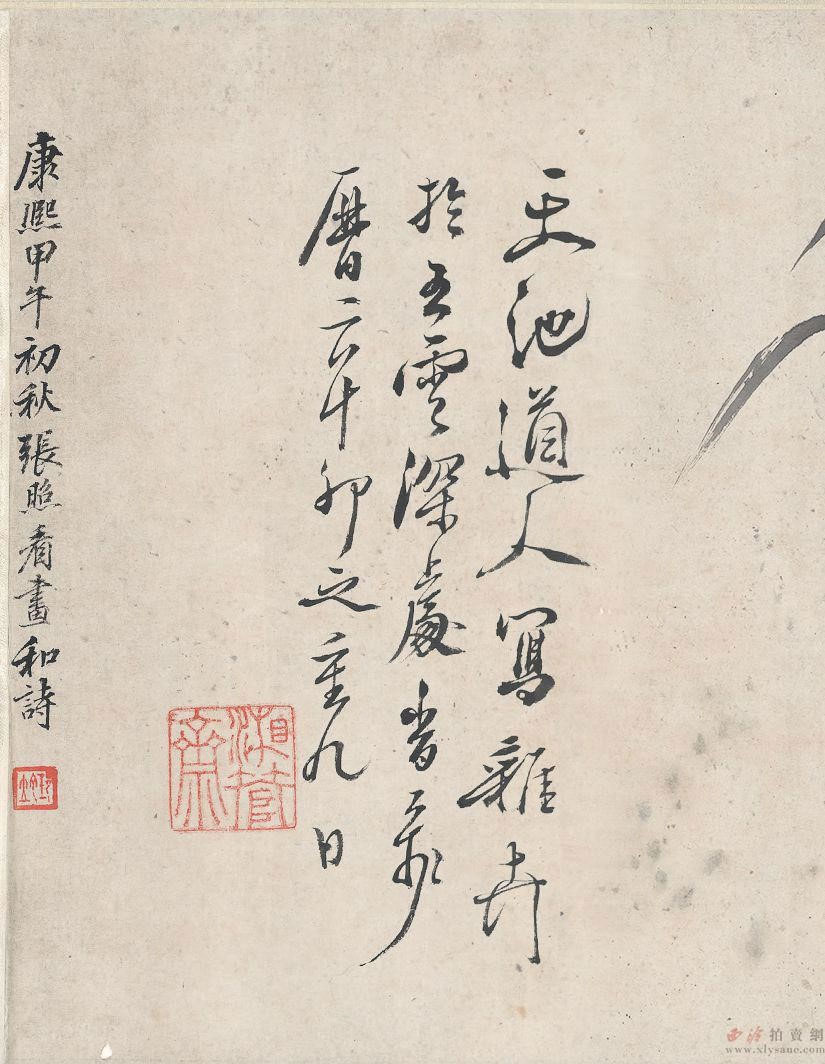 天池道人寫雜卉
於五雲深處旹萬
曆辛卯之重九日
湘管齋
康熙甲午初秋張照看畫和詩
西泠拍賣網
www.xlysauc.com